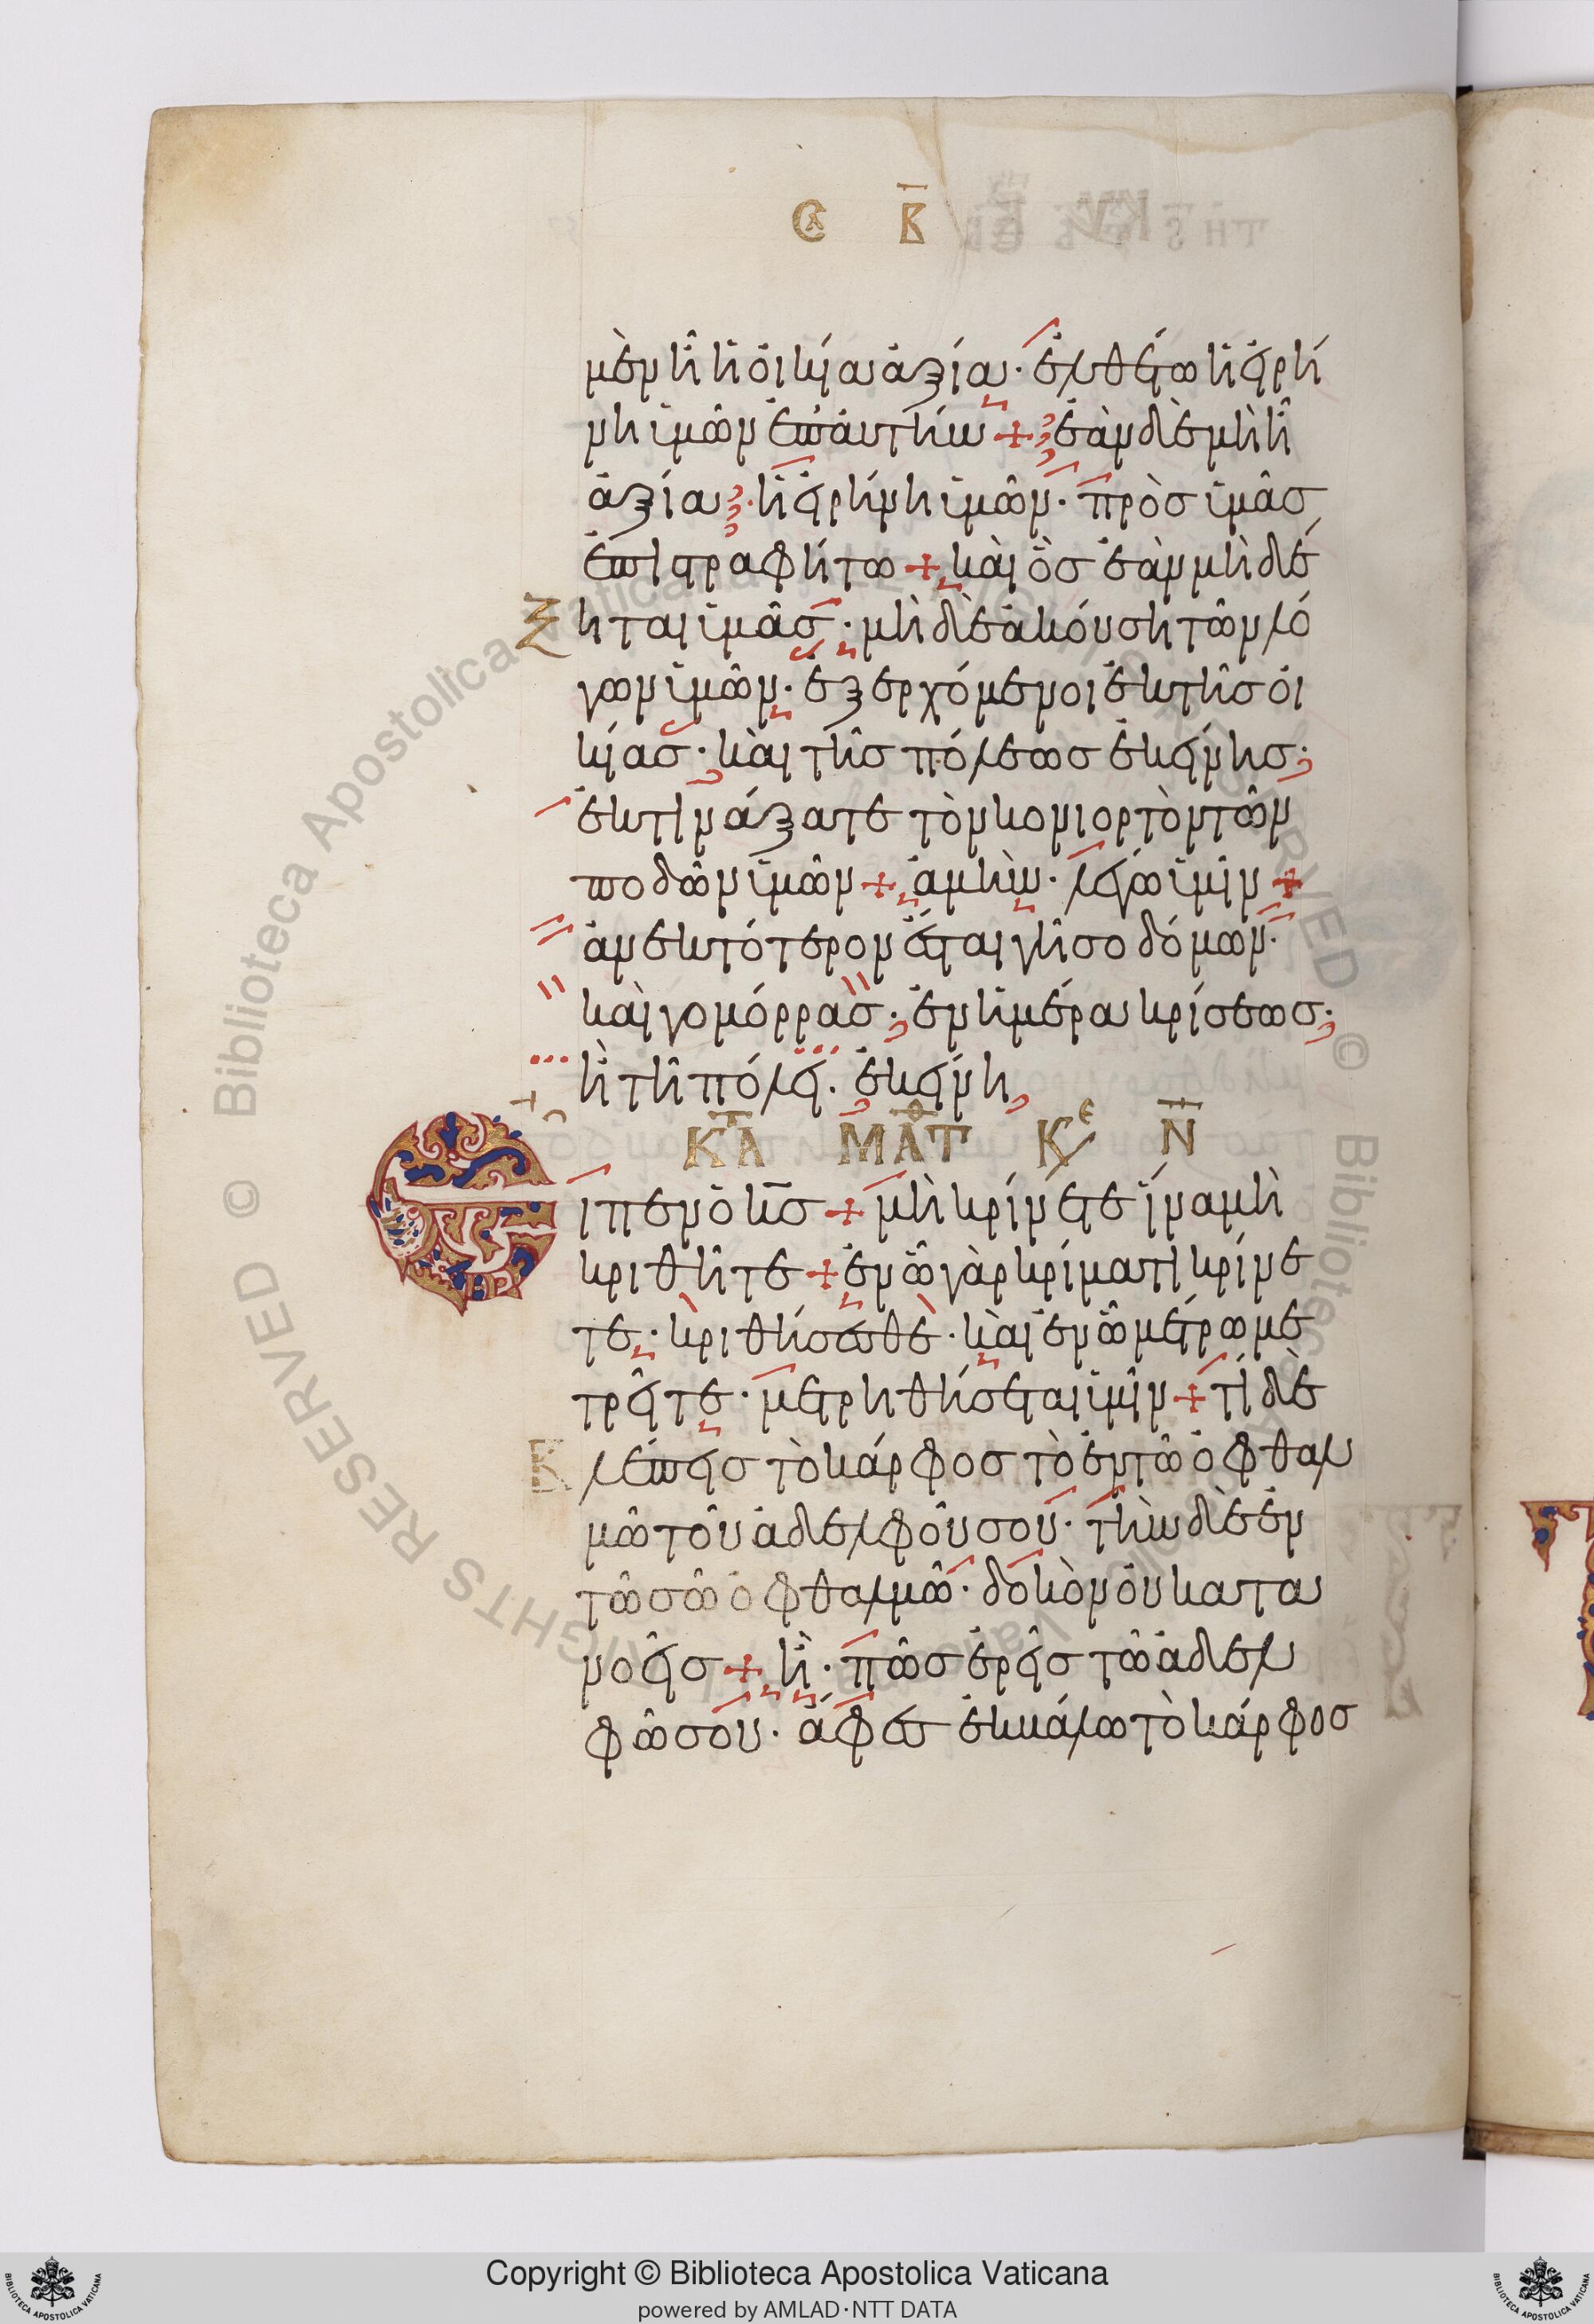 ϹΑ Β̅
μὲν ἦ ἡ οἰκία ἀξία· ἐλθέτω ἡ εἰρή
νη ὑμῶν ἐπ' αὐτήν + ἐὰν δὲ μὴ ἦ
ἀξία· ἡ εἰρήνη ὑμῶν· πρὸσ ὑμᾶσ
ἐπιστραφήτω + καὶ ὃσ ἐὰν μὴ δέ
ξηται ὑμᾶσ· μὴ δὲ ἀκούση τῶν λό
γων ὑμῶν· ἐξερχόμενοι ἐκ τῆσ οἰ
κίασ· καὶ τῆσ πόλεωσ ἐκείνησ·
ἐκτινάξατε τὸν κονιορτὸν τῶν
ποδῶν ὑμῶν + ἀμὴν· λέγω ὑμῖν +
ἀνεκτότερον ἔσται γῆ σοδόμων·
καὶ γομόρρασ· ἐν ἡμέρα κρίσεωσ·
ἢ τῆ πόλει· ἐκείνη
ΚΑΤ ΜΑΤΘ ΚΕ Ν
Εἶπεν ὁ κ̅σ + μὴ κρίνετε ἵνα μὴ
κριθῆτε + ἐν ὧ γὰρ κρίματι κρίνε
τε· κριθήσεσθὲ· καὶ ἐν ὧ μέτρω με
τρεῖτε· μετρηθήσεται ὑμῖν + τί δὲ
Βλέπεισ τὸ κάρφοσ τὸ ἐν τῶ ὀφθαλ
μῶ τοῦ ἀδελφοῦ σου· τὴν δὲ ἐν
τῶ σῶ ὀφθαλμῶ· δοκὸν οὐ κατα
νοεῖσ + ἢ· πῶσ ἐρεῖσ τῶ ἀδελ
φῶ σου· ἄφεσ ἐκβάλω τὸ κάρφοσ
Copyright © Biblioteca Apostolica Vaticana
powered by AMLAD·NTT DATA